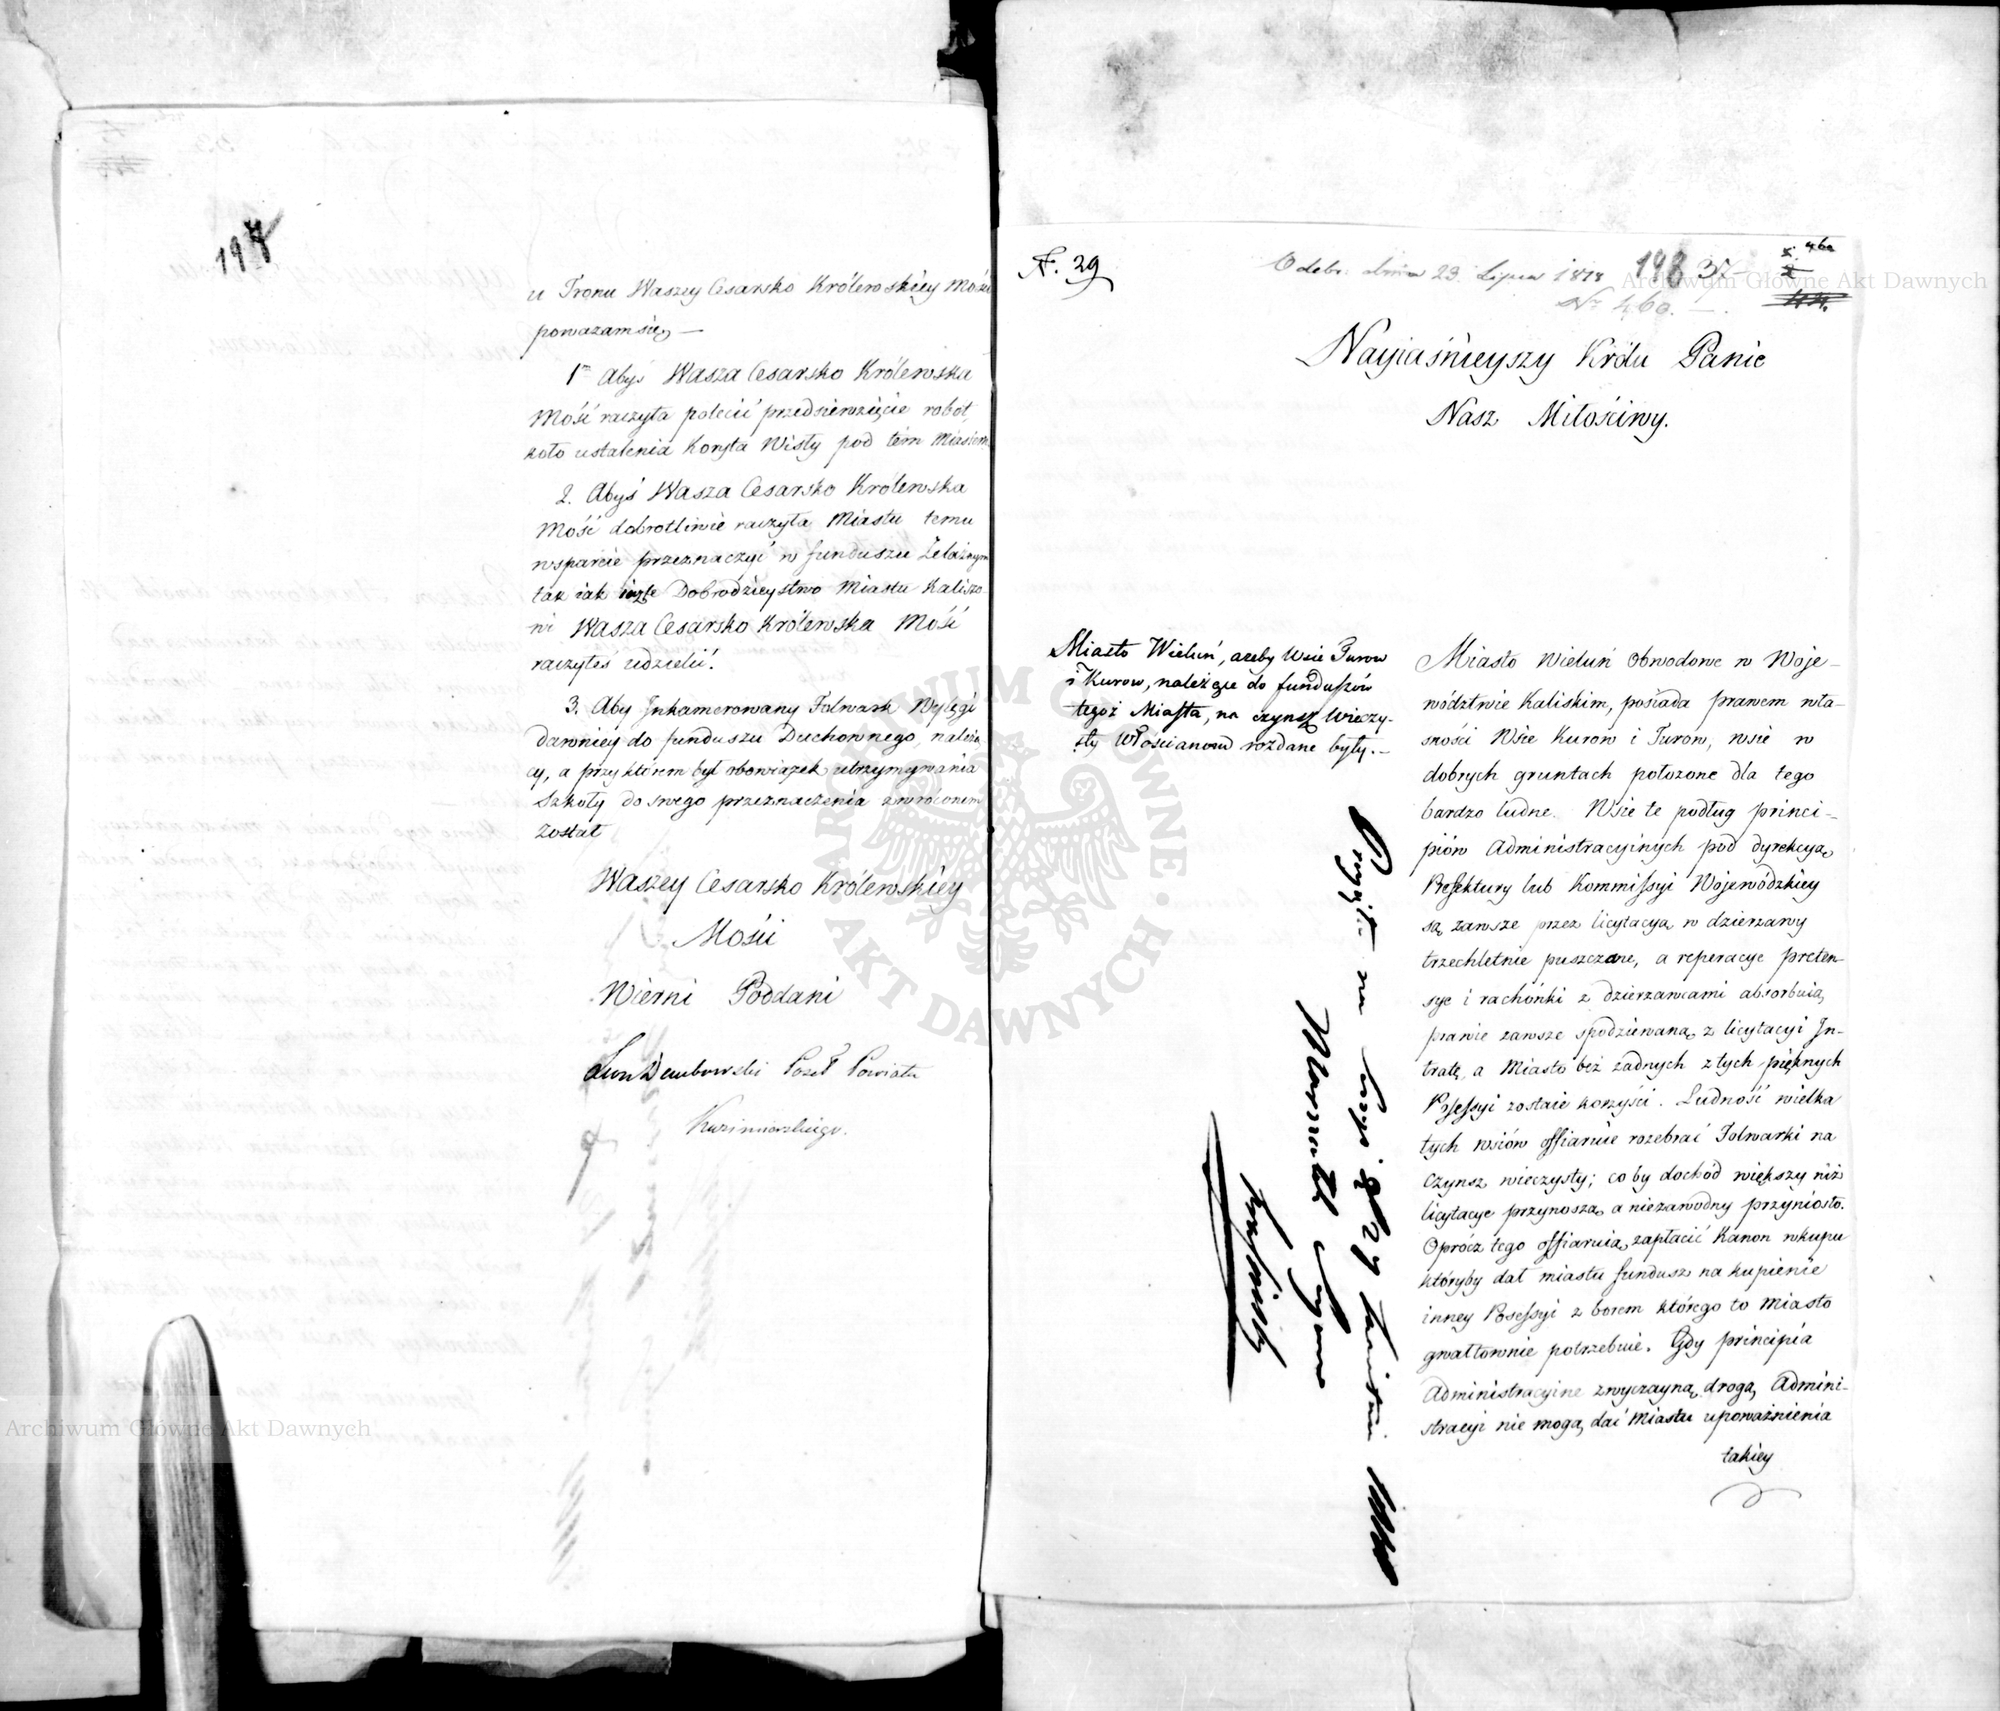 197
u Tronu Waszey Cesarsko Królewskiey Mości
poważam się, —
1º Abyś Wasza Cesarsko Królewska
Mość raczyła polecić przedsiewzięcie robót,
koło ustalenia Koryta Wisły pod tém Miastem
2. Abyś Wasza Cesarsko Królewska
Mość dobrotliwie raczyła Miastu temu
wsparcie przeznaczyć w funduszu Żelaznym
tak iak Dobrodzieystwo Miastu Kaliszo
wi Wasza Cesarsko Królewska Mość
raczyłeś udzielić.
3. Aby Inkamerowany Folwark Wylągi
dawniey do funduszu Duchownego należą
cy, a przy którem był obowiązek utrzymywania
Szkoły do swego przeznaczenia zwróconem
został
Waszey Cesarsko Królewskiey
Mości
Wierni Poddani
Leon Dembowski Poseł Powiatu
Kazimierskiego.
Archiwum Główne Akt Dawnych
ARCHIWUM GŁÓWNE AKT DAWNYCH
N. 29
Odebr. dnia 23. Lipca 1818 198 37
460
Nº 460. —
Archiwum Główne Akt Dawnych
Nayiaśnieyszy Królu Panie
Nasz Miłościwy.
Miasto Wieluń, ażeby Wsie Turow
i Kurow, należące do funduszów
tegoż Miasta, na czynsz Wieczy-
sty Włościanom rozdane były. —
Przyięto na Sessyi
Marszałek Seymu
Krasiński
Miasto Wieluń Obwodowe w Woje-
wództwie Kaliskim, posiada prawem wła-
sności Wsie Kurow i Turow, wsie w
dobrych gruntach położone dla tego
bardzo ludne. Wsie te podług princi-
piów Administracyinych pod dyrekcyą
Prefektury lub Kommissyi Wojewódzkiey
są zawsze przez licytacyą w dzierzawy
trzechletnie puszczane, a reperacye preten-
sye i rachónki z dzierzawcami absorbuią
prawie zawsze spodziewaną z licytacyi In-
tratę, a Miasto bez żadnych z tych pięknych
Possessyi zostaie korzyści. Ludność wielka
tych wsiów offiaruie rozebrać Folwarki na
czynsz wieczysty; co by dochód większy niż
licytacye przynoszą a niezawodny przyniosło.
Oprócz tego offiaruią zapłacić Kanon wkupu
któryby dał miastu fundusz na kupienie
inney Posessyi z borem którego to Miasto
gwałtownie potrzebuie. Gdy principia
Administracyine zwyczayną drogą Admini-
stracyi nie mogą dać Miastu upoważnienia
takiey